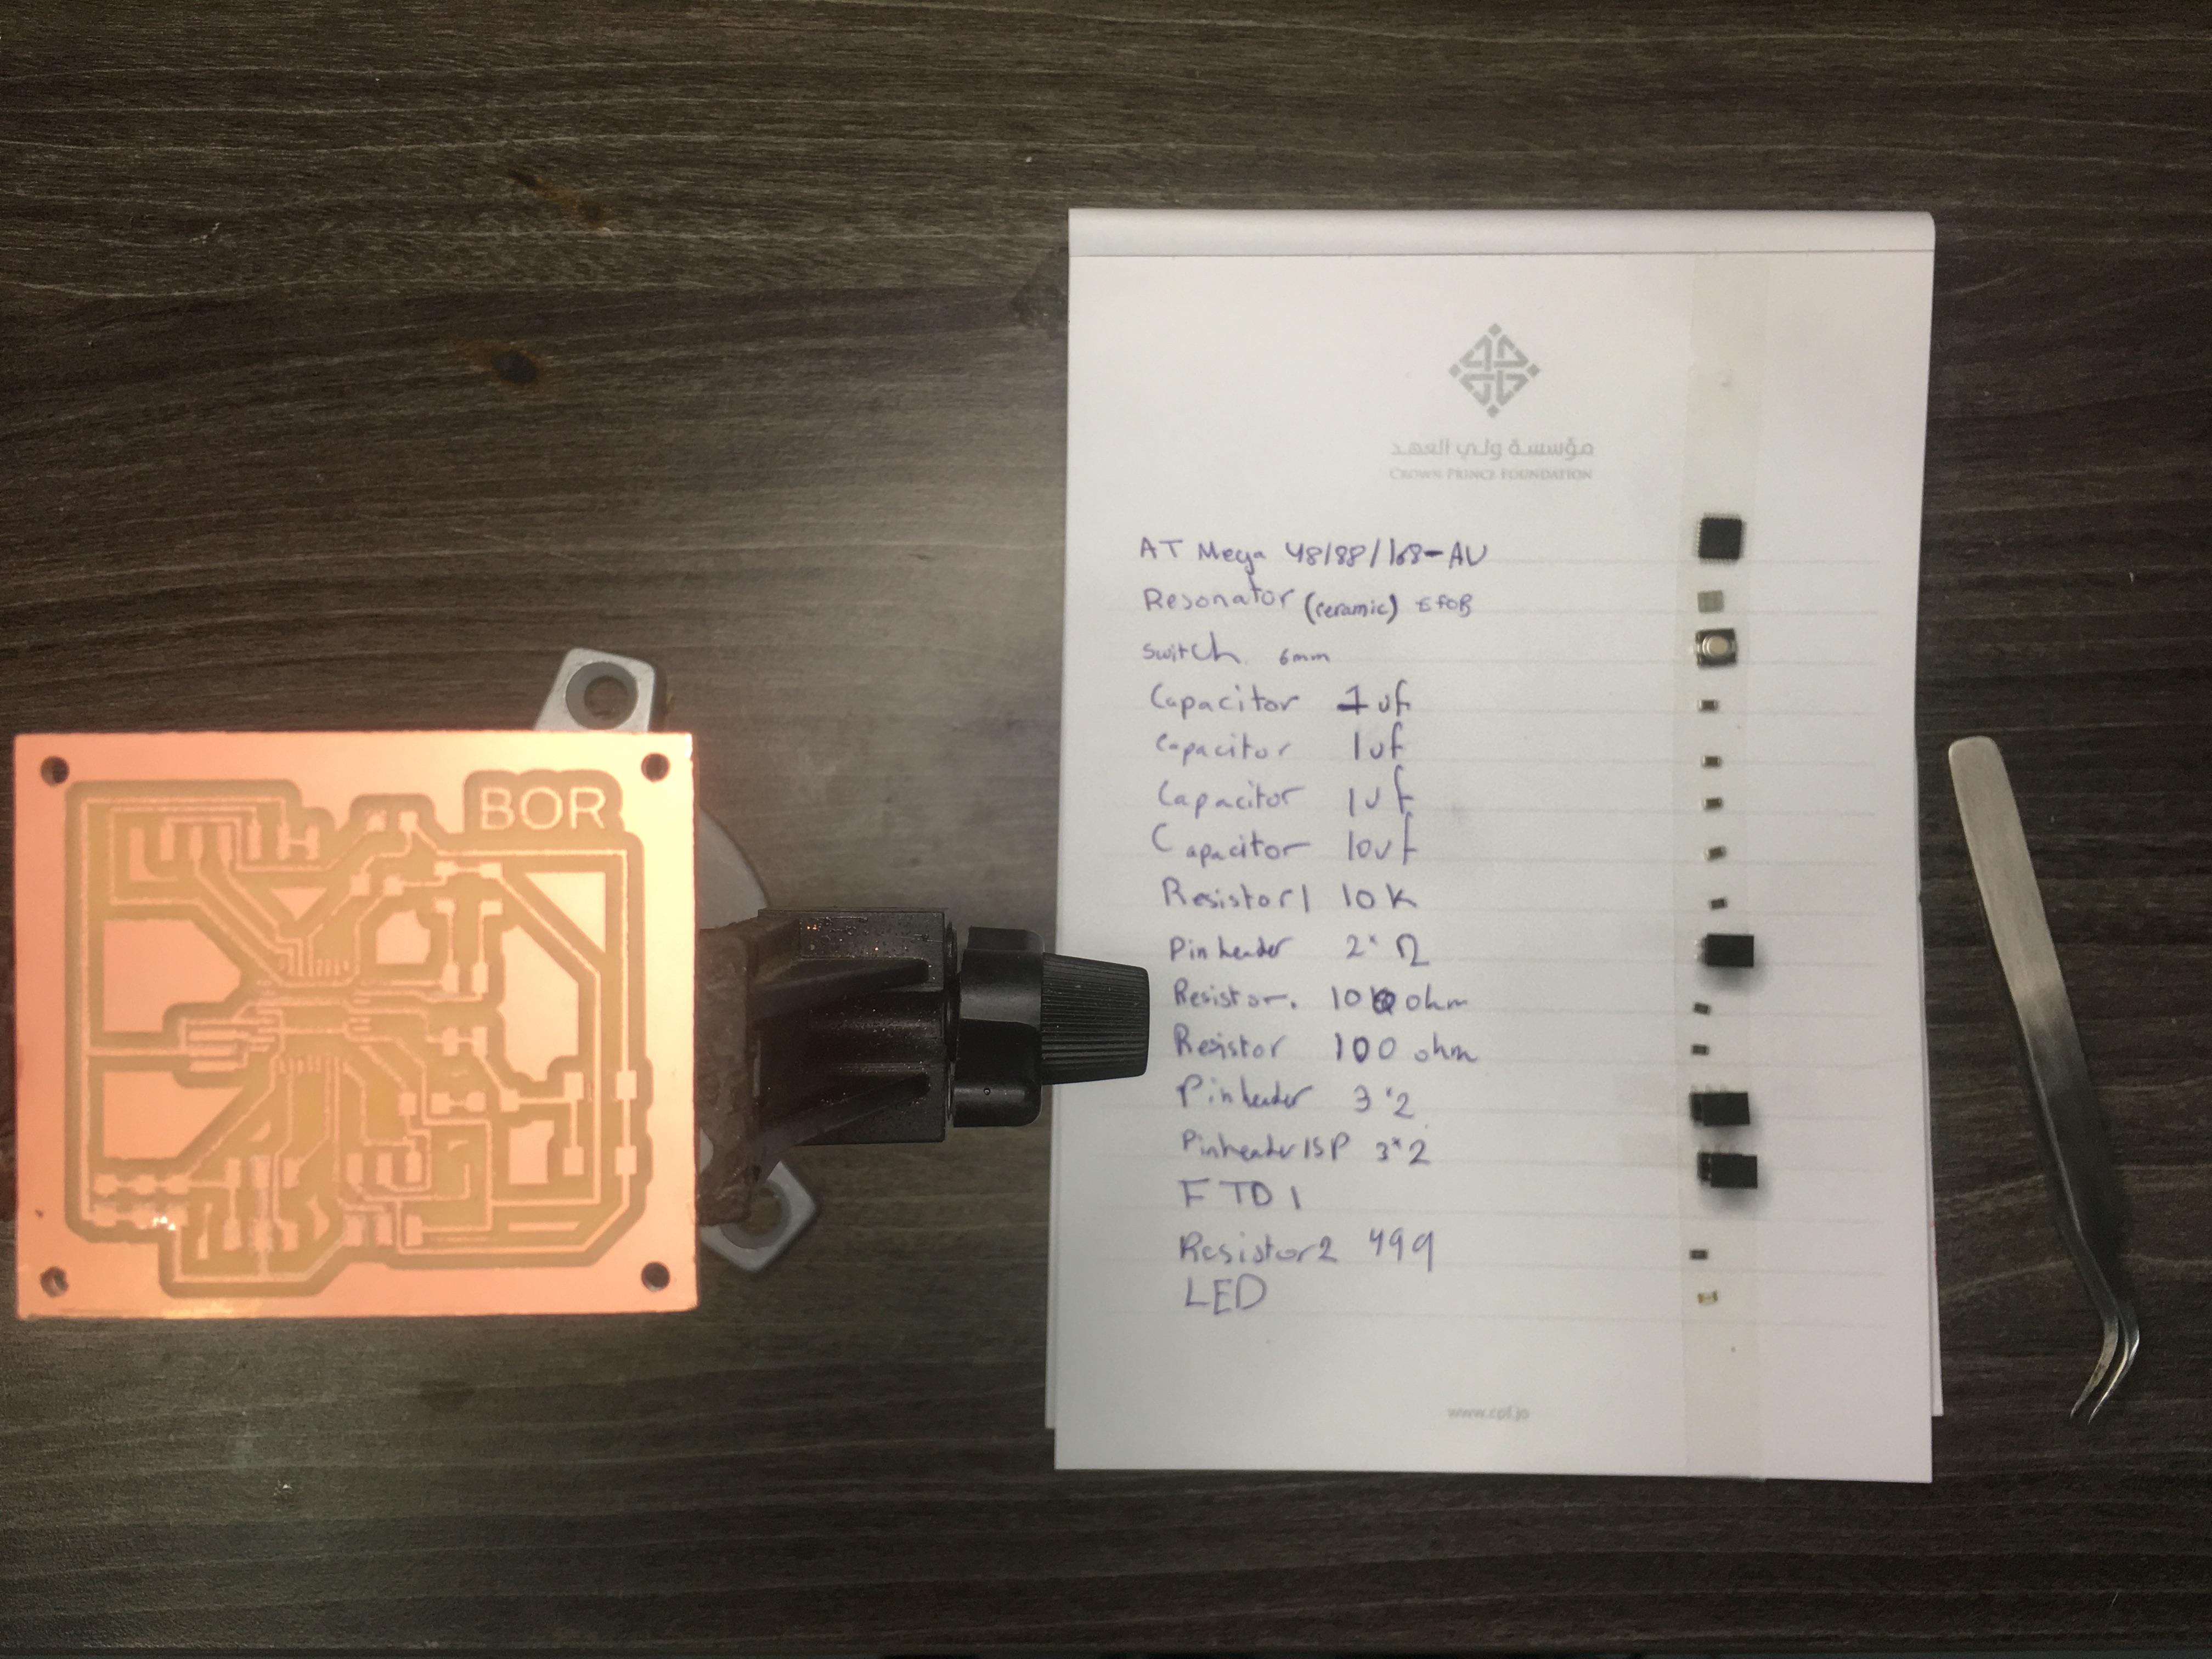 BOR
مؤسسة ولي العهد
CROWN PRINCE FOUNDATION
AT Mega 48/88/168-AV
Resonator (ceramic) EFOB
Switch 6mm
Capacitor 1 uf
Capacitor 1uf
Capacitor 1uf
Capacitor 10uf
Resistor1 10K
Pin header 2*
Resistor. 100 ohm
Resistor 100 ohm
Pin header 3*2
Pinheader ISP 3*2
FTDI
Resistor2 499
LED
www.cpf.jo